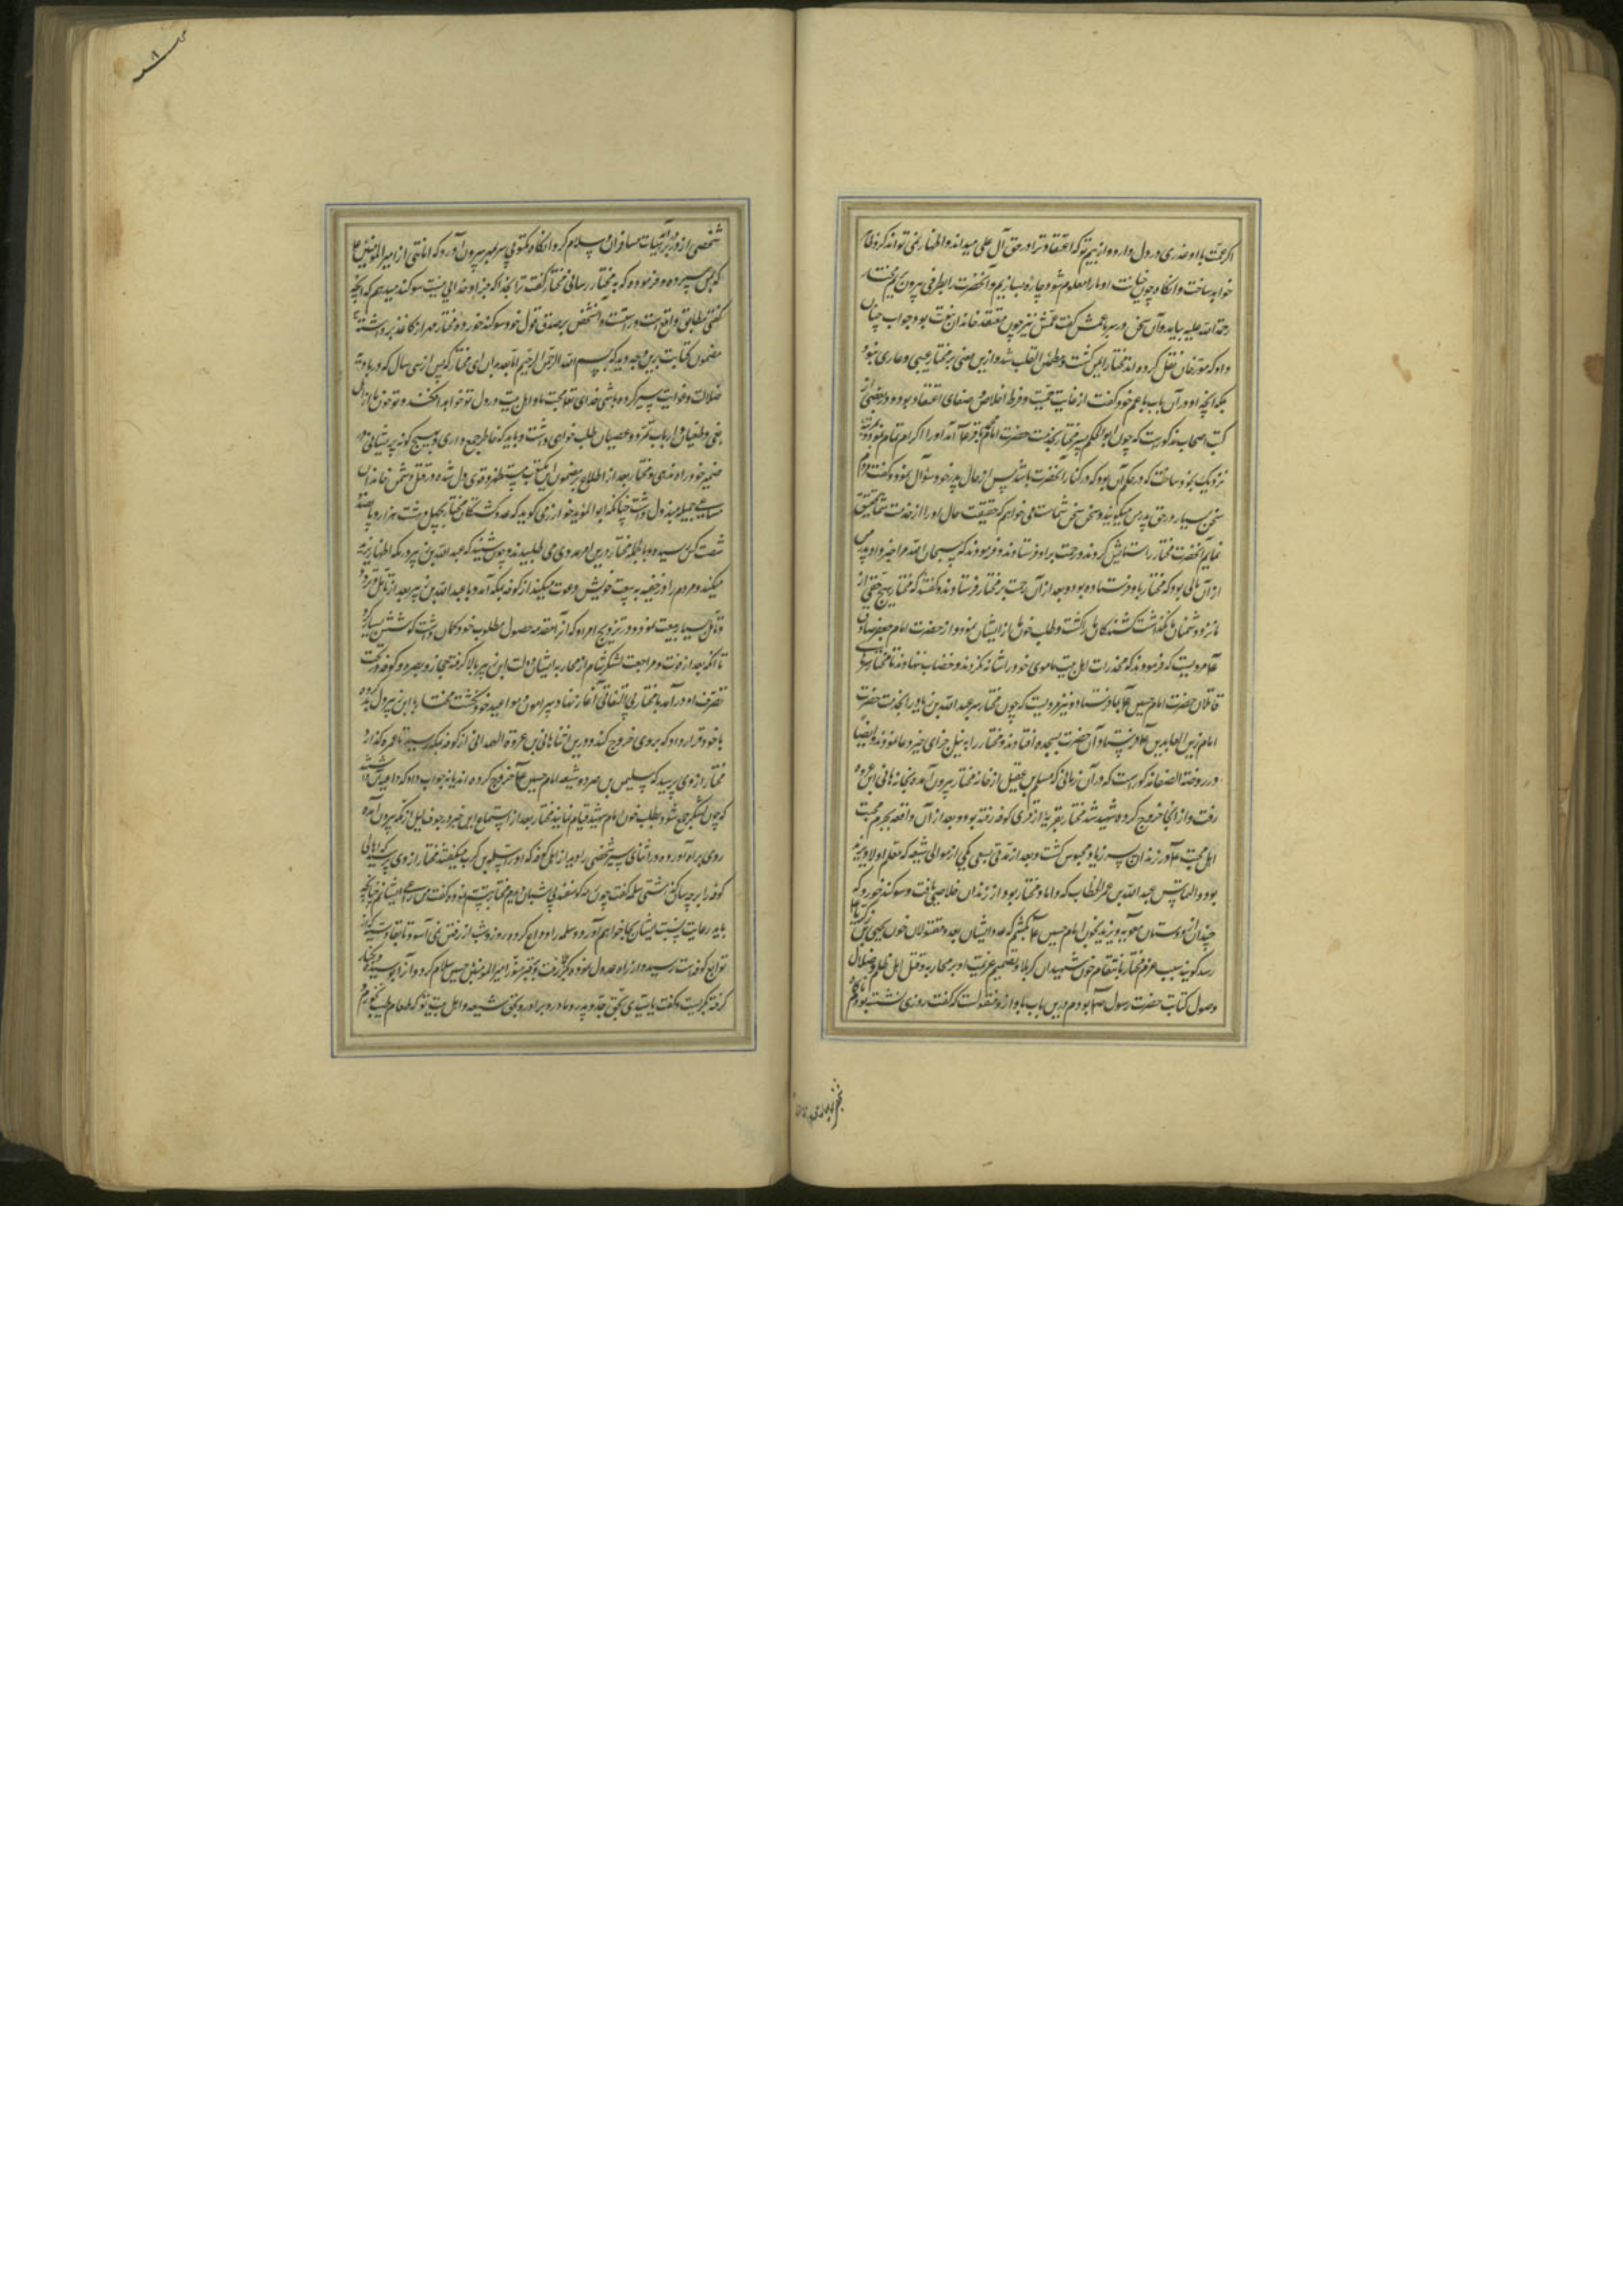 اگر عمت با او عذری در دل دارد و از بیم تو که اعتقاد ترا در حق آل علی میداند و اظهار نمی تواند کرد ظاهر
خواهد ساخت و آنگاه چون خیانت او ما را معلوم شود چاره بسازیم و آنحضرت را بطرفی بیرون بریم مختار
رحمة الله علیه بیامد و آن سخن در سر با عمش گفت عمش نیز چون معتقد خاندان نبوت بود جواب چنان
داد که مورخان نقل کرده اند مختار ایمن گشت و مطمئن القلب شد و ازین معنی بر مختار عیبی و عاری نبود
بلکه آنچه او در آن باب با عم خود گفت از غایت حمیت و فرط اخلاص و صفای اعتقاد بود و در بعضی از
کتب اصحاب مذکور است که چون ابو الحکم پسر مختار بخدمت حضرت امام محمد باقر ع آمد او را اکرام تمام نموده
نزدیک بخود ساخت که در حکم آن بود که در کنار آنحضرت باشد پس از حال پدر خود سؤال نمود و گفت مردم
سخن بسیار در حق پدر من میگویند و سخن سخن شماست می خواهم که حقیقت حال او را از خدمت شما تحقیق
نمایم آنحضرت مختار را ستایش کردند و رحمت بر او فرستادند و فرمودند که سبحان الله مرا خبر داد پدر من
از آن مالی بود که مختار باو فرستاده بود و بعد از آن رحمت بر مختار فرستادند و گفتند که مختار هیچ حقی از
ما نزد دشمنان نگذاشت کشندگان ما را کشت و طلب خون ما از ایشان نمود و از حضرت امام جعفر صادق
ع مرویست که فرمودند که مخدرات اهل بیت ما موی خود را شانه نکردند و خضاب ننهادند تا مختار سر
قاتلان حضرت امام حسین ع بما فرستاد و نیز مرویست که چون مختار سر عبد الله بن زیاد را بخدمت حضرت
امام زین العابدین ع فرستاد آن حضرت بسجده افتادند و مختار را به نیل جزای خیر دعا نمودند و ایضا
در روضة الصفا مذکور است که در آن زمانی که مسلم بن عقیل از خانه مختار بیرون آمده بخانه هانی بن عروه
رفت و از آنجا خروج کرده شهید شد مختار بقریه از قری کوفه رفته بود و بعد از آن واقعه بجرم محبت
اهل بیت ع در زندان پسر زیاد محبوس گشت و بعد از مدتی بسعی یکی از موالی شیعه که معلم اولاد
بود و التماس عبد الله بن عمر الخطاب که داماد مختار بود از زندان خلاصی یافت و سوگند خورد که
چندان از دوستان معویه و یزید بخون امام حسین ع بکشم که عدد ایشان بعدد مقتولان خون یحیی بن زکریا
رسد گویند سبب عزم مختار بانتقام خون شهیدان کربلا و تصمیم عزیمت او بر محاربه و قتل اهل ظلم و ضلال
وصول کتابت حضرت رسول ص بود هم درین باب باو از و منقولست که گفت روزی نشسته بودم ناگاه
شخصی از در درآمد بهیات مسافران و سلام کرد و آنگاه مکتوبی سر بمهر بیرون آورد که امانتی از امیر المؤمنین علی
که بمن سپرده و فرموده که به مختار رسانی مختار گفت ترا بخدا که جز او خدایی نیست سوگند میدهم که آنچه
گفتی مطابق واقع است و راست و آنشخص بر صدق قول خود سوگند خورد و مختار مهر از کاغذ برداشته
مضمون کتابت برین وجه دید که بسم الله الرحمن الرحیم اما بعد بدان ای مختار که پس از سی سال که در بادیه
ضلالت و غوایت سیر کرده باشی خدای تعالی محبت ما و اهل بیت در دل تو خواهد افکند و تو خون ما را از اهل
بغی و طغیان و ارباب تمرد و عصیان طلب خواهی داشت و باید که خاطر جمع داری و هیچ گونه پریشانی در
ضمیر خود راه ندهی و مختار بعد از اطلاع بر مضمون این مکتوب مستظهر و قوی دل شده در قتل دشمن خاندان
مساعی جمیله مبذول داشت چنانکه ابو المؤید خوارزمی گوید که عدد کشتگان مختار بچهل و هشت هزار و پانصد
شصت کس رسیده و بالجمله مختار درین امر ممدی می طلبید و چون شنید که عبد الله بن زبیر در مکه اظهار
میکند و مردم را در خفیه به بیعت خویش دعوت میکند از کوفه بمکه آمد و با عبد الله بن زبیر بعد از تامل و تردد
و تانی بسیار بیعت نمود و در ترویج امر او که از آن مقدمه حصول مطلوب خود گمان داشت کوشش بسیار کرد
تا آنکه بعد از فوت و مراجعت لشکر شام از محاربه ایشان دولت ابن زبیر بالا گرفته حجاز و بصره و کوفه در تحت
تصرف او درآمد با مختار بی التفاتی آغاز نهاد و پیرامون مواعید خود نگشت مختار با ابن زبیر دل بد کرده
با خود قرار داد که بر وی خروج کند و درین اثنا هانی بن عروة الهمدانی از کوفه بمکه رسید تا عمره گذارد
مختار از وی پرسید که سلیمان بن صرد و شیعه امام حسین ع خروج کرده اند یا نه جواب داد که داعیه آن داشتند
که چون لشکر جمع شود بطلب خون امام شهید قیام نمایند مختار بعد از استماع این خبر در جوف لیل از مکه بیرون آمده
روی براه آورد و در اثنای سیر شخصی را دید از اهل کوفه که او را سلمة بن کرب میگفتند مختار از وی پرسید که اهالی
کوفه را بر چه سان گذاشتی سلمه گفت چون رمه گوسفند بی شبان دیدم مختار تبسم نموده گفت من راعی ایشانم چنانچه
باید رعایت بنسبت ایشان بجا خواهم آورد و سلمه را وداع کرده روز و شب از رفتن نمی آسود تا بقادسیه که از
توابع کوفه است رسید و از راه عدول نموده بکربلا رفت و بر قبر منور امیر المؤمنین حسین سلام کرد و آنرا بوسیده در کنار
گرفته بگریست و گفت یا سیدی بحق جد و پدر و مادر و برادر و بحق شیعه و اهل بیت تو که طعام طیب نخورم